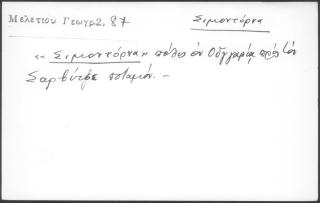 Μελετίου Γεωγρ2, 87
Σιμοντόρνα
« Σιμοντόρνα » πόλις ἐν Οὑγγαρίᾳ πρὸς τὸν
Σαρβύτζε ποταμόν. –